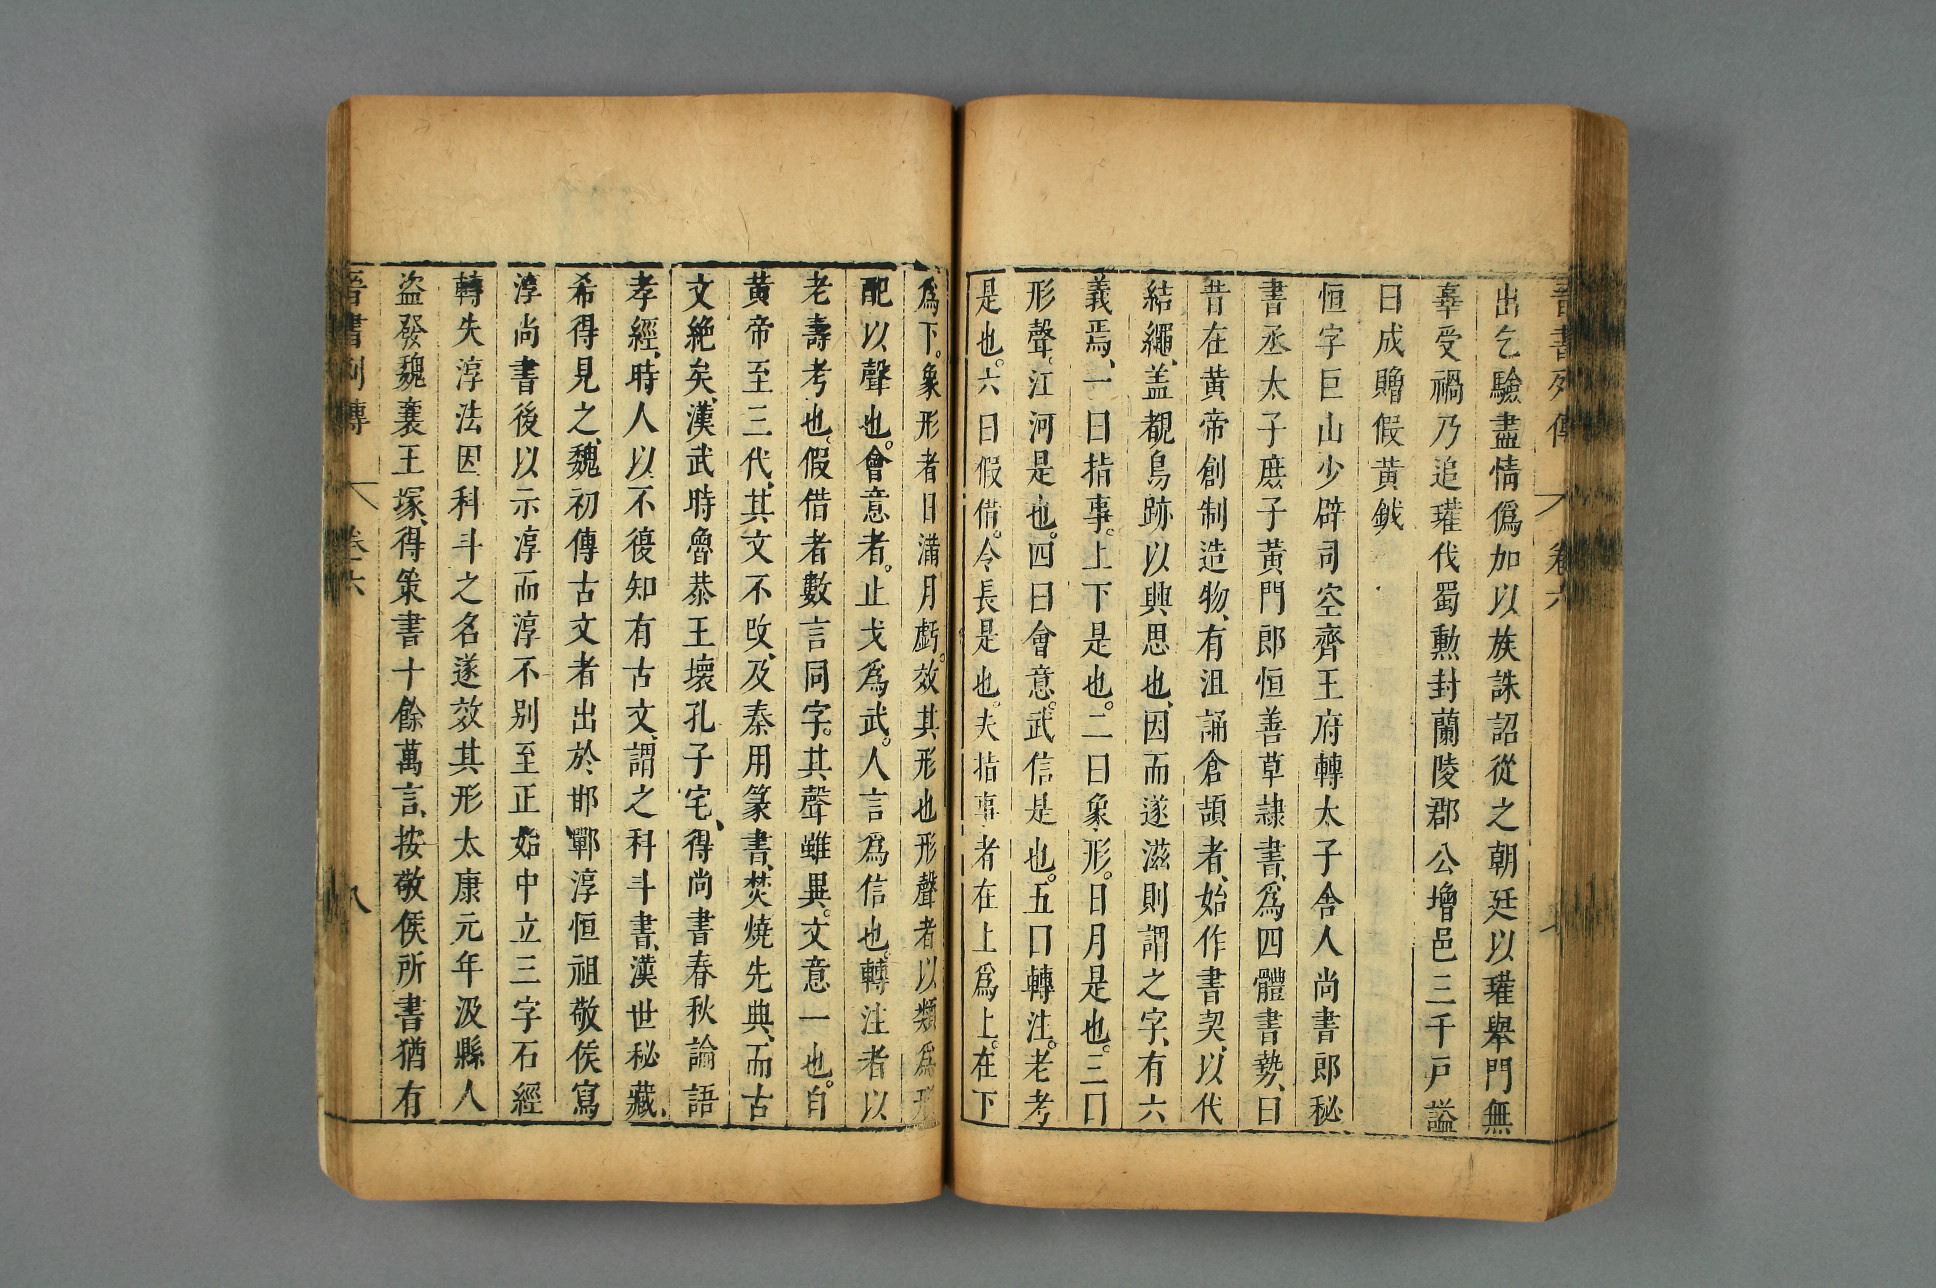 晉書列傳 卷六
出乞驗盡情僞加以族誅詔從之朝廷以瓘舉門無
辜受禍乃追瓘伐蜀勲封蘭陵郡公增邑三千戸謚
曰成贈假黃鉞
恒字巨山少辟司空齊王府轉太子舍人尚書郎秘
書丞太子庶子黃門郎恒善草隷書、爲四體書勢、曰
昔在黃帝創制造物、有沮誦倉頡者、始作書契、以代
結繩、盖覩鳥跡以興思也、因而遂滋則謂之字、有六
義焉、一曰指事。上下是也。二曰象形。日月是也。三曰
形聲。江河是也。四曰會意。武信是也。五曰轉注。老考
是也。六曰假借。令長是也。夫指事者在上爲上。在下
爲下。象形者日滿月虧。效其形也形聲者以類爲形
配以聲也。會意者。止戈爲武。人言爲信也。轉注者以
老壽考也。假借者數言同字。其聲雖異。文意一也。自
黃帝至三代、其文不改、及秦用篆書、焚燒先典、而古
文絶矣、漢武時魯恭王壞孔子宅、得尚書春秋論語
孝經、時人以不復知有古文、謂之科斗書、漢世秘藏、
希得見之、魏初傳古文者出於邯鄲淳恒祖敬侯寫
淳尚書後以示淳而淳不别至正始中立三字石經
轉失淳法因科斗之名遂效其形太康元年汲縣人
盗發魏襄王塚、得策書十餘萬言、按敬侯所書猶有
晉書列傳 卷六 八